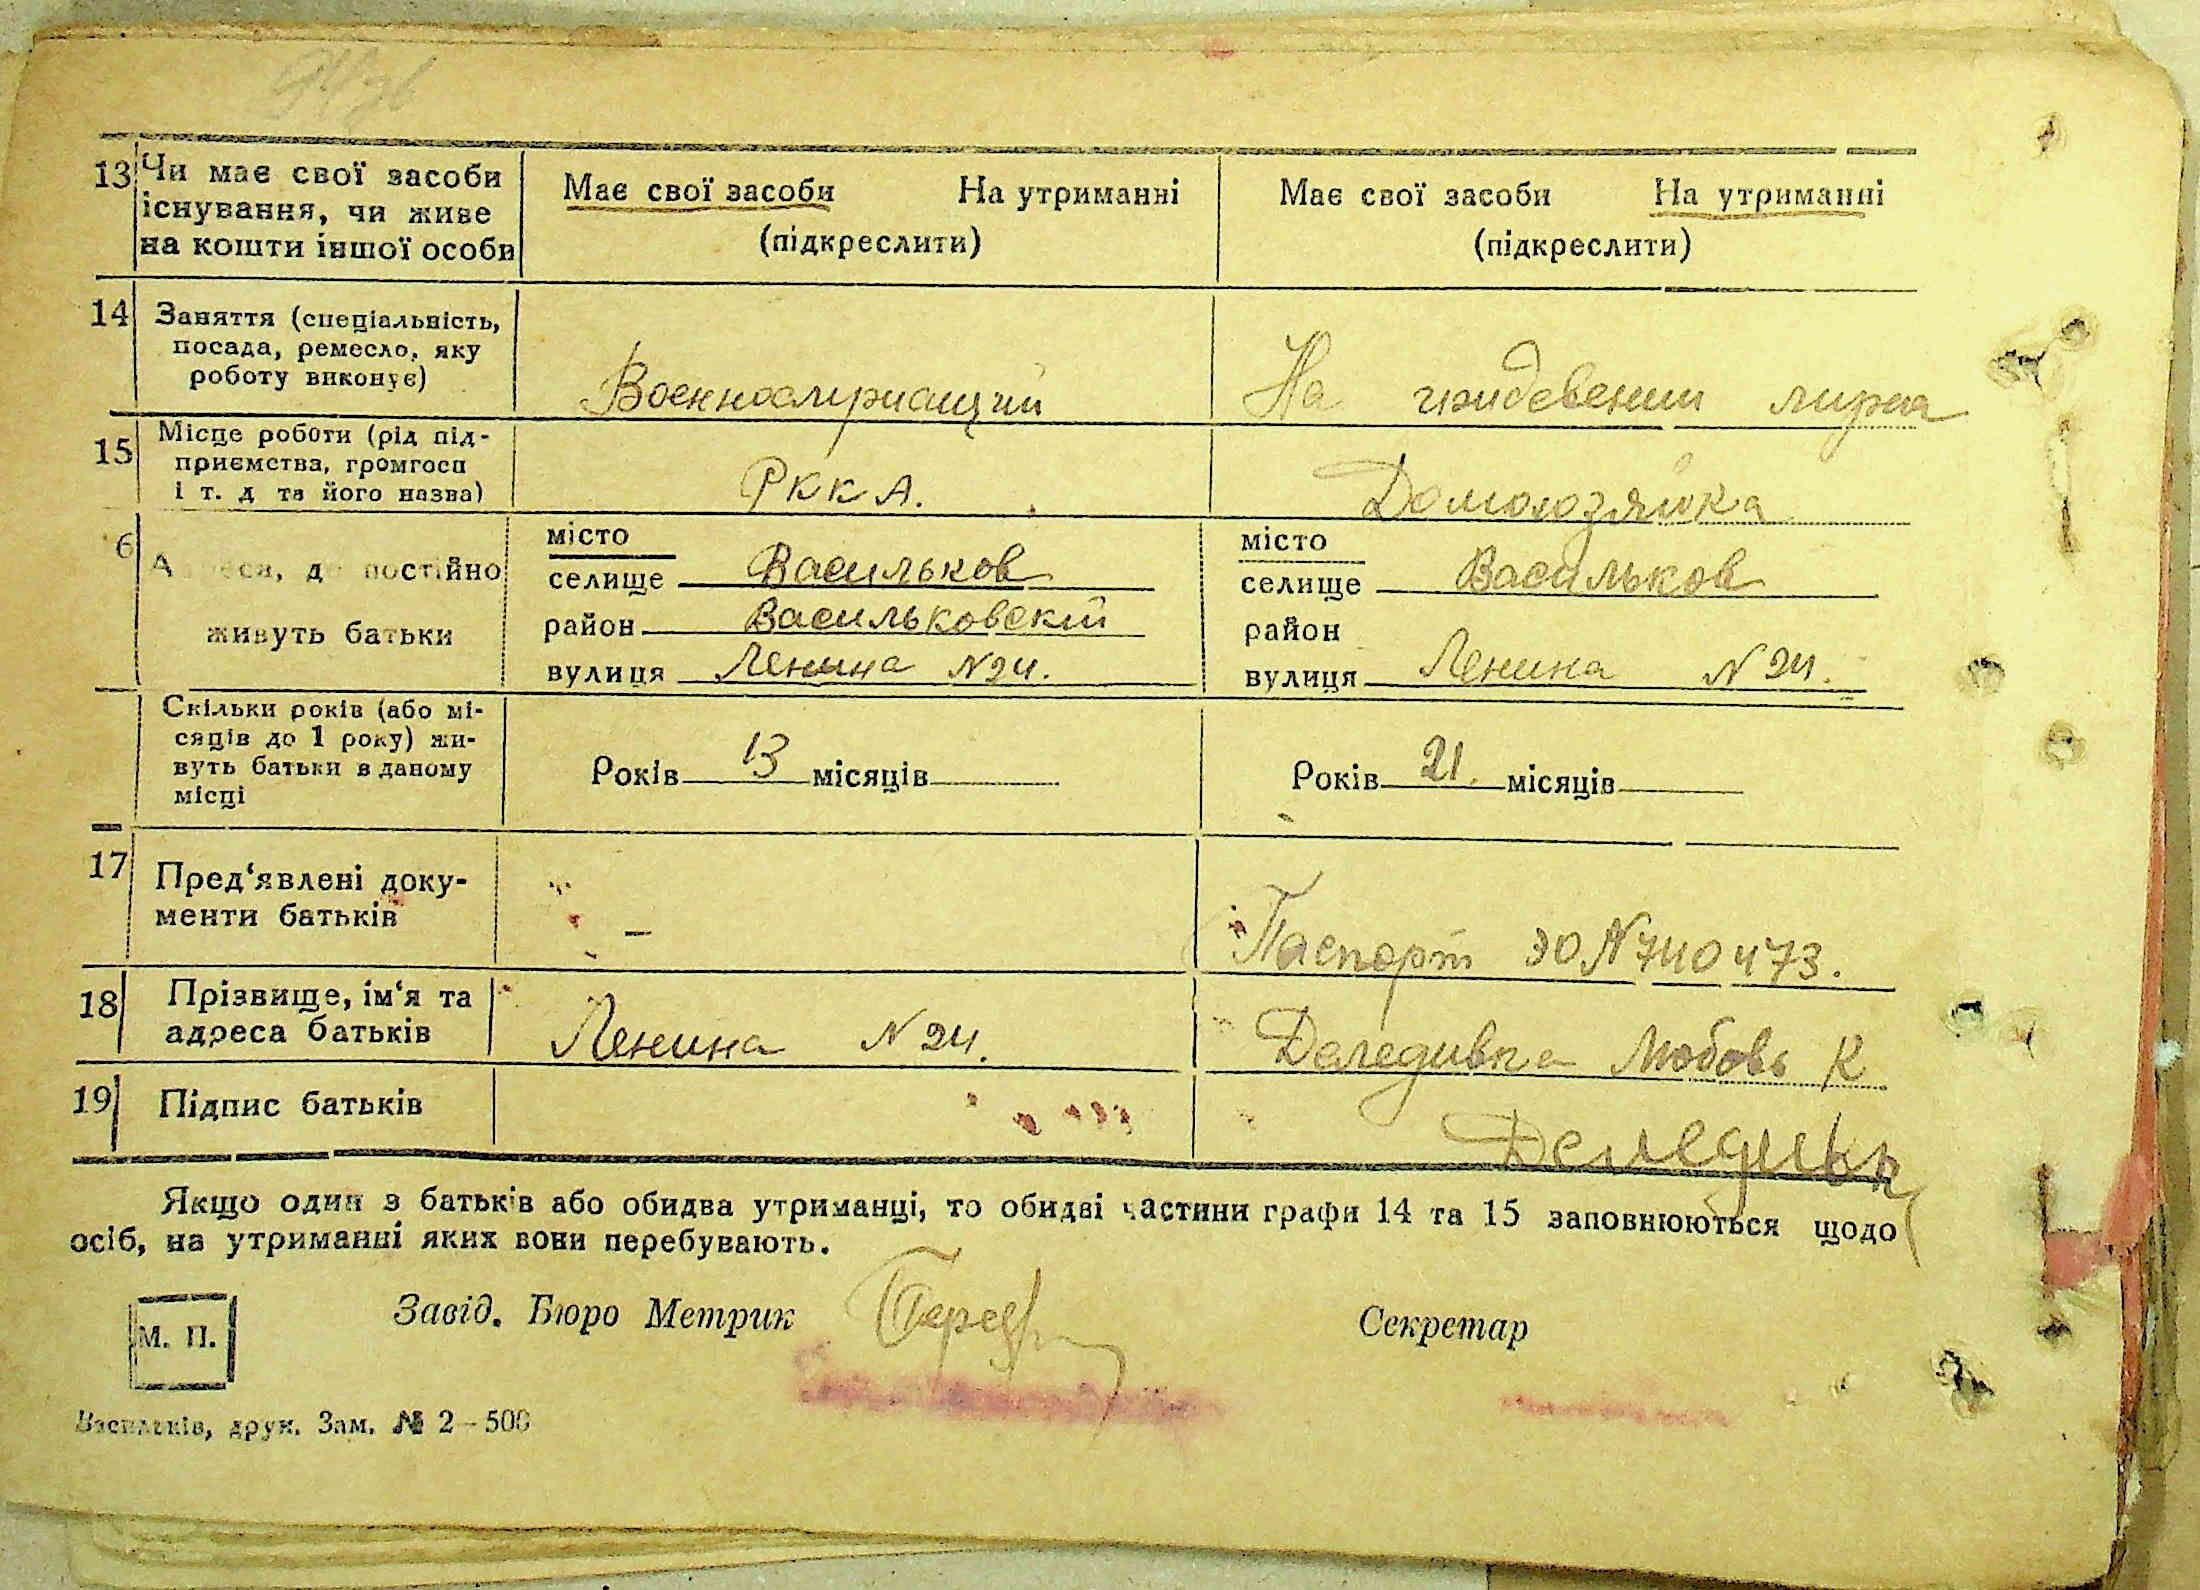 13 Чи має свої засоби
існування, чи живе
на кошти іншої особи
Має свої засоби На утриманні
(підкреслити)
Має свої засоби На утриманні
(підкреслити)
14 Заняття (спеціальність,
посада, ремесло, яку
роботу виконує)
Военнослужащий
На иждевении мужа
15 Місце роботи (рід під-
приємства, громгосп
і т. д та його назва)
РККА.
Домохозяйка
6 Адреса, де постійно
живуть батьки
місто
селище Васильков
район Васильковский
вулиця Ленина N 24.
місто
селище Васильков
район
вулиця Ленина N 24.
Скільки років (або мі-
сяців до 1 року) жи-
вуть батьки в даному
місці
Років 13 місяців
Років 21. місяців
17 Пред‘явлені доку-
менти батьків
–
Паспорт ЭО N 740473.
18 Прізвище, ім‘я та
адреса батьків
Ленина N 24.
Любовь К
19 Підпис батьків
Якщо один з батьків або обидва утриманці, то обидві частини графи 14 та 15 заповнюються щодо
осіб, на утриманні яких вони перебувають.
М. П.
Завід. Бюро Метрик
Секретар
Васильків, друк. Зам. № 2—500